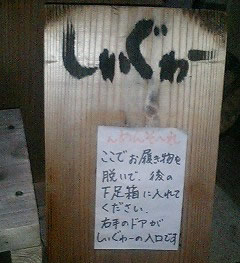 しぃぐゎー
ここでお履き物を
脱いで、後の
下足箱に入れて
ください。
右手のドアが
しぃぐゎーの入口です